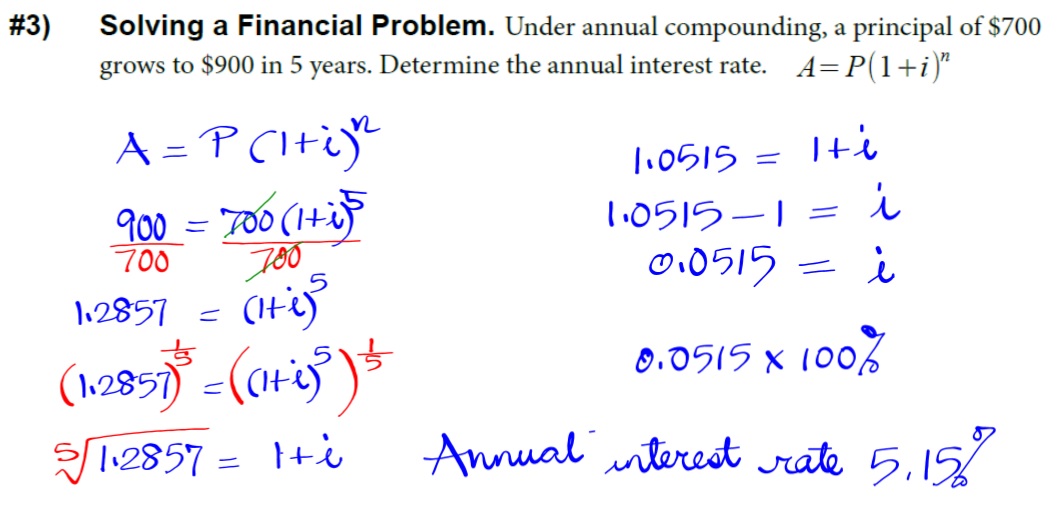 #3) Solving a Financial Problem. Under annual compounding, a principal of $700
grows to $900 in 5 years. Determine the annual interest rate. A=P(1+i)ⁿ
A = P(1+i)ⁿ
900/700 = 700(1+i)⁵/700
1.2857 = (1+i)⁵
(1.2857)^(1/5) = ((1+i)⁵)^(1/5)
⁵√1.2857 = 1+i
1.0515 = 1+i
1.0515-1 = i
0.0515 = i
0.0515 x 100%
Annual interest rate 5.15%